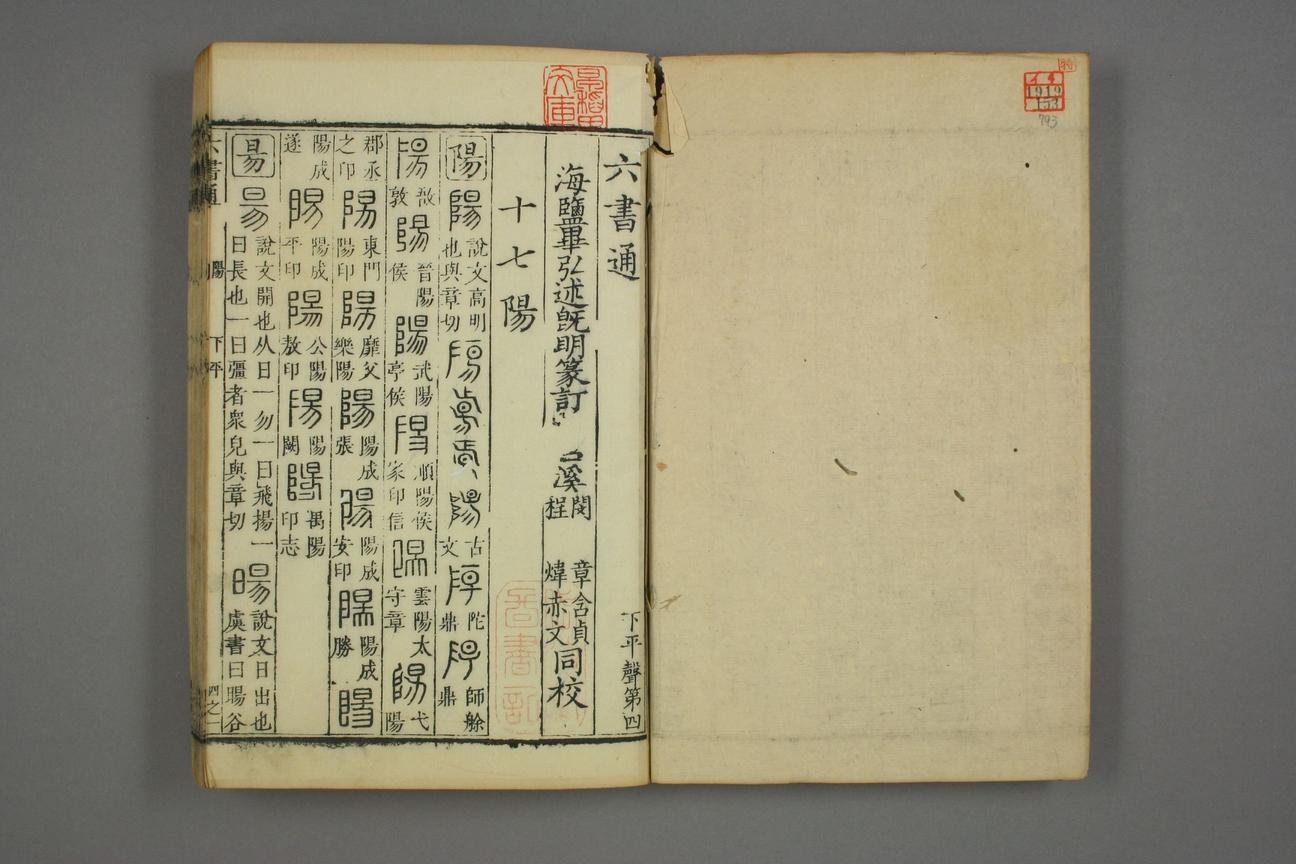 六書通
下平聲第四
海鹽畢弘述既明篆訂
溪
閔
程
章含貞
煒赤文
同校
十七陽
陽 陽 說文高明
也與章切
古
文
陀
鼎
師艅
鼎
敔
敦
晉陽
侯
武陽
亭侯
順陽侯
家印信
雲陽太
守章
弋
陽
郡丞
之印
東門
陽印
靡父
樂陽
陽成
張
陽成
安印
陽成
勝
陽成
遂
陽成
平印
公陽
敖印
陽
闕
禺陽
印志
昜 昜 說文開也从日一勿一曰飛揚一
曰長也一曰彊者衆皃與章切
暘 說文日出也
虞書曰暘谷
六書通
陽
下平
四之一
特
イ4
1919
153
793